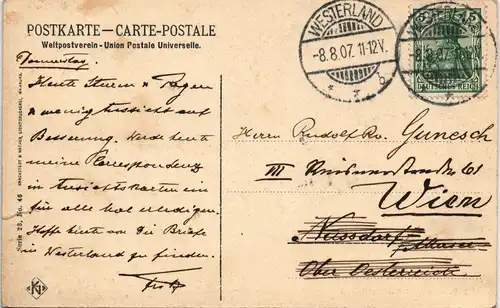 POSTKARTE – CARTE-POSTALE
Weltpostverein - Union Postale Universelle.
Donnerstag
Heute Sturm u. Regen
u wenig Aussicht auf
Besserung. Werde heute
meine Correspondenz
in Ansichtskarten ein
für alle Mal erledigen.
Hoffe heute von Dir Briefe
in Westerland zu finden.
Fritz
Serie 23, No. 46
WESTERLAND
-8.8.07. 11-12V.
* b
DEUTSCHES REICH
5 5
Herrn Rudolf Gunesch
III
Wien
Nussdorf
Ober Oesterreich